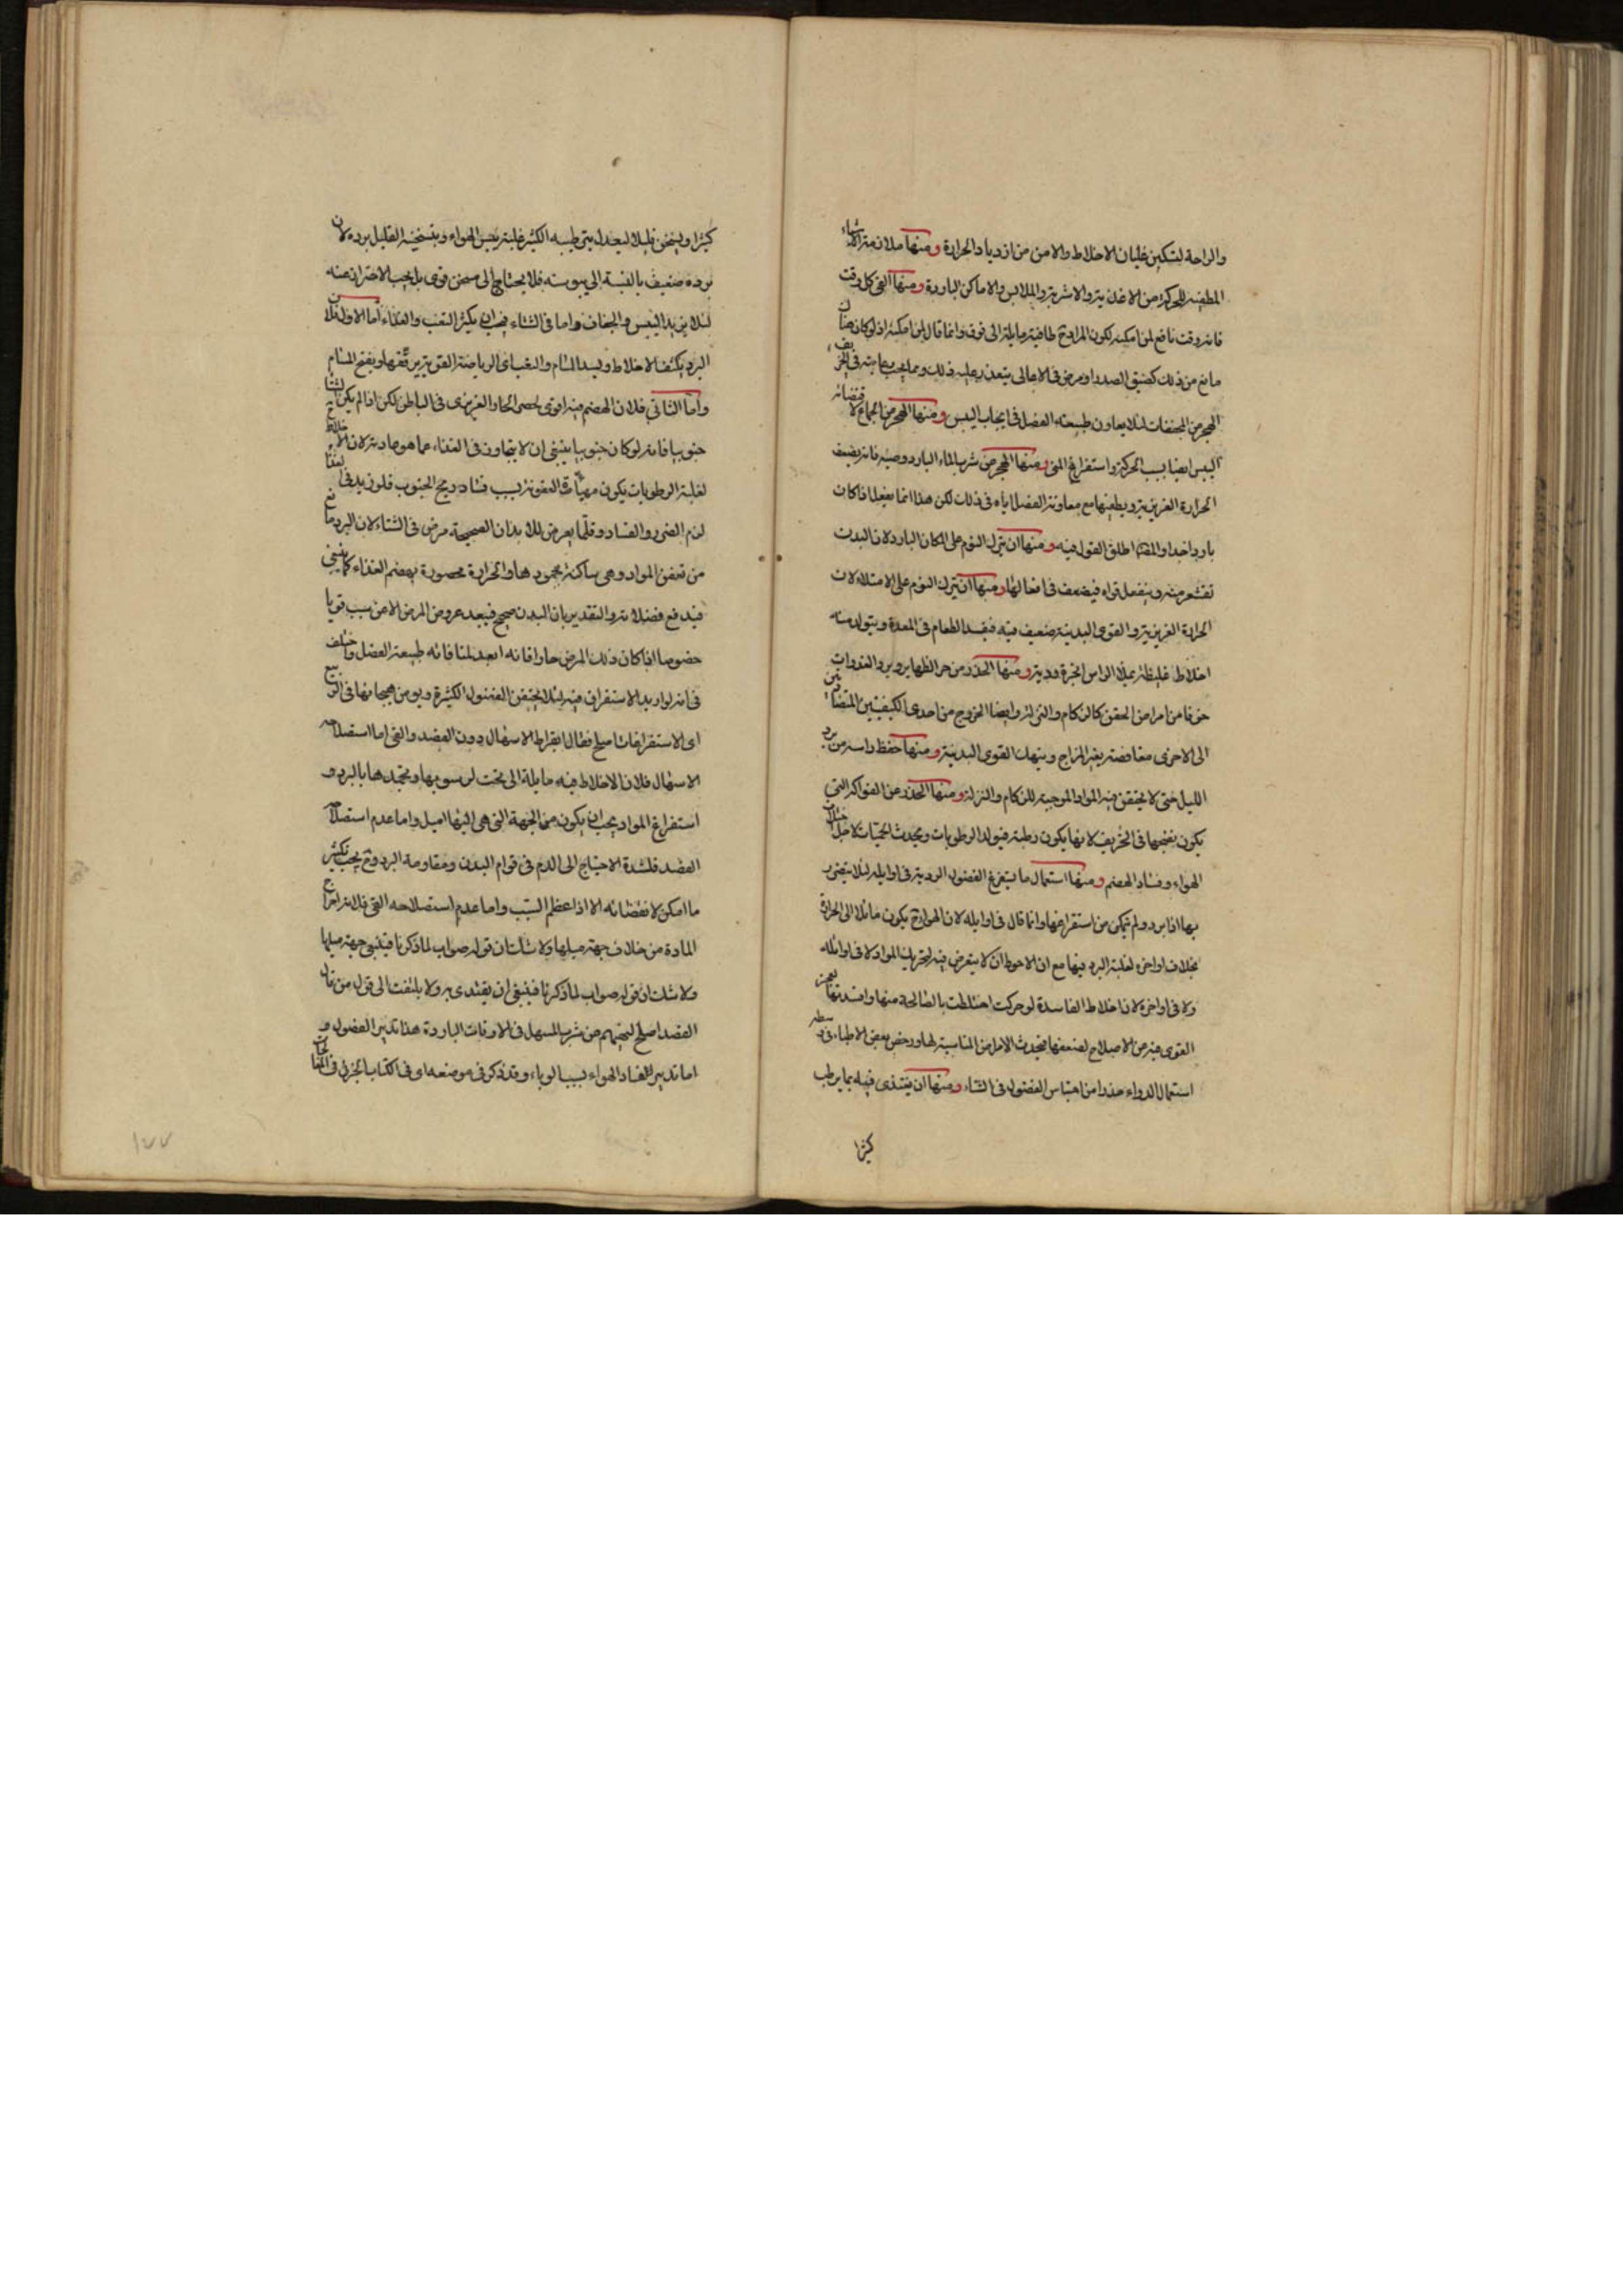 والراحة لتسكين غليان الاخلاط والامن من ازدياد الحرارة ومنها ملازمة الاشياء
المطفية للحرارة من الاغذية والاشربة والملابس والاماكن الباردة ومنها القئ كل وقت
فانه وقت نافع لمن امكنه لكون المواد ح طافية مايلة الى فوق وانما قال لمن امكنه اذ لو كان هناك
مانع من ذلك كضيق الصدر او مرض فى الاعالى يتعذر عليه ذلك ومما يجب رعايته فى الخريف
الهجر من المجففات لئلا يعاون طبيعة الفصل فى ايجاب اليبس ومنها الهجر من الجماع لاقتضائه
اليبس ايضا بسبب الحركة واستفراغ المنى ومنها الهجر من شرب الماء البارد وصبه فانه يضعف
الحرارة الغريزية ويطفيها مع معاونة الفصل اياه فى ذلك لكن هذا انما يفعل اذا كان
باردا جدا والمص اطلق القول فيه ومنها ان يترك النوم على المكان البارد لان البدن
تقشعر منه وينفعل قواه فيضعف فى افعالها ومنها ان يترك النوم على الامتلاء لان
الحرارة الغريزية والقوى البدنية ضعيف فيه فيفسد الطعام فى المعدة ويتولد منه
اخلاط غليظة يملأ الراس ابخرة ردية ومنها الحذر من حر الظهاير وبرد الغدوات
خوفا من امراض الحقن كالزكام والنزلة وايضا الخروج من احدى الكيفيتين المتضادتين
الى الاخرى مغافصة يغير المزاج وينهك القوى البدنية ومنها حفظ راسه من برد
الليل حتى لا يحتقن فيه المواد الموجبة للزكام والنزلة ومنها الحذر من الفواكه التى
يكون نضجها فى الخريف لانها يكون رطبة فيولد الرطوبات ويحدث الحميات لاجل اختلاف
الهواء وفساد الهضم ومنها استعمال ما يستفرغ الفضول الردية فى اوايله لئلا يتضرر
بها اذا برد ولم يتمكن من استفراغها وانما قال فى اوايله لان الهواء ح يكون مائلا الى الحرارة
بخلاف اواخره لغلبة البرد فيها مع ان الاحوط ان لا يتعرض فيه لتحريك المواد لا فى اوائله
ولا فى اواخره لان اخلاط الفاسدة لو حركت اختلطت بالصالحة منها وافسدتها لعجز
القوى فيه عن الاصلاح لضعفها فتحدث الامراض المناسبة لها ورخص بعض الاطباء فى وسطه
استعمال الدواء حذرا من احتباس الفضول فى الشتاء ومنها ان يغتذى فيه بما يرطب
كثيرا
كثيرا ويسخن قليلا ليعدل بترطيبه الكثير غلبة يبس الهواء وبتسخينه القليل برده لان
برده ضعيف بالنسبة الى يبوسته فلا يحتاج الى مسخن قوى بل يجب الاحتراز عنه
لئلا يزيد اليبس والجفاف واما فى الشتاء فيجب ان يكثر التعب والغذاء اما الاول فلان
البرد يكثف الاخلاط ويسد المسام والتعب اى الرياضة القوية يرققها ويفتح المسام
واما الثانى فلان الهضم فيه اقوى لحصر الحار الغريزى فى الباطن لكن اذا لم يكن الشتاء
جنوبيا فانه لو كان جنوبيا ينبغى ان لا يتجاوز فى الغذاء عما هو عادته لان الاخلاط ح
لغلبة الرطوبات يكون مهيأة للعفونة بسبب فساد ريح الجنوب فلو زيد فى الغذاء
لزم الضرر والفساد وقلما يعرض للابدان الصحيحة مرض فى الشتاء لان البرد مانع
من تعفن المواد وهى ساكنة بجمودها والحرارة محصورة يهضم الغذاء كما ينبغى
فيندفع فضلاته والتقدير بان البدن صحيح فيبعد عروض المرض الا من سبب قويا
خصوصا اذا كان ذلك المرض حارا فانه ابعد لمنافاته طبيعة الفصل واختلف
فى انه لو اريد الاستفراغ فيه لئلا يحتقن الفضول الكثيرة ويومن هيجانها فى الربيع
اى الاستفراغات اصلح فقال ابقراط الاسهال دون الفصد والقئ اما استصلاحه
الاسهال فلان الاخلاط فيه مايلة الى تحت لرسوبها وتجمدها بالبرد و
استفراغ المواد يجب ان يكون من الجهة التى هى اليها اميل واما عدم استصلاحه
الفصد فلشدة الاحتياج الى الدم فى قوام البدن ومقاومة البرد وح يجب تكثير
ما امكن لا نقصانه الا اذا عظم السبب واما عدم استصلاحه القئ فلانه اخراج
المادة من خلاف جهة ميلها ولا شك ان قوله صواب لما ذكرنا فينبغى جهة ميلها
ولا شك ان قوله صواب لما ذكرنا فينبغى ان يقتدى به ولا يلتفت الى قول من قال
الفصد اصلح لتحيرهم من شرب المسهل فى الاوقات الباردة هذا تدبير الفصول و
اما تدبير الفساد الهواء بسبب الوباء وقد ذكر فى موضعه اى فى الكتاب الجزئى فى
١٧٧